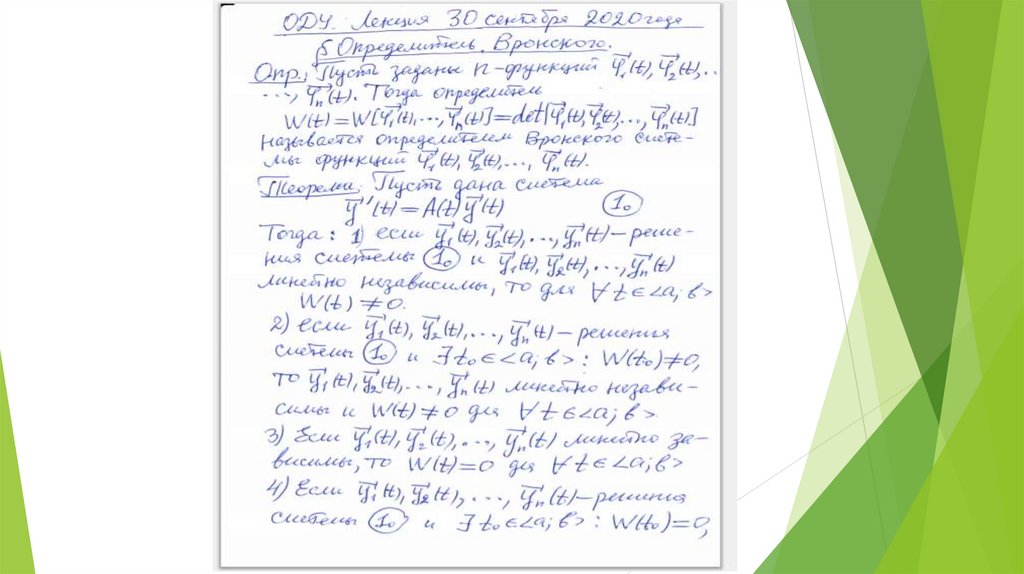 ОДУ. Лекция 30 сентября 2020 года
§ Определитель Вронского.
Опр. Пусть заданы n-функций φ⃗₁(t), φ⃗₂(t),..
..., φ⃗ₙ(t). Тогда определитель
W(t) = W[φ⃗₁(t),..., φ⃗ₙ(t)] = det[φ⃗₁(t), φ⃗₂(t),..., φ⃗ₙ(t)]
называется определителем Вронского систе-
мы функций φ⃗₁(t), φ⃗₂(t),..., φ⃗ₙ(t).
Теорема. Пусть дана система
y⃗'(t) = A(t) y⃗(t) (1₀)
Тогда: 1) если y⃗₁(t), y⃗₂(t),..., y⃗ₙ(t) – реше-
ния системы (1₀) и y⃗₁(t), y⃗₂(t),..., y⃗ₙ(t)
линейно независимы, то для ∀ t ∈ <a; b>
W(t) ≠ 0.
2) если y⃗₁(t), y⃗₂(t),..., y⃗ₙ(t) – решения
системы (1₀) и ∃ t₀ ∈ <a; b> : W(t₀) ≠ 0,
то y⃗₁(t), y⃗₂(t),..., y⃗ₙ(t) линейно незави-
симы и W(t) ≠ 0 для ∀ t ∈ <a; b>.
3) Если y⃗₁(t), y⃗₂(t),..., y⃗ₙ(t) линейно за-
висимы, то W(t) = 0 для ∀ t ∈ <a; b>
4) Если y⃗₁(t), y⃗₂(t),..., y⃗ₙ(t) – решения
системы (1₀) и ∃ t₀ ∈ <a; b> : W(t₀) = 0,